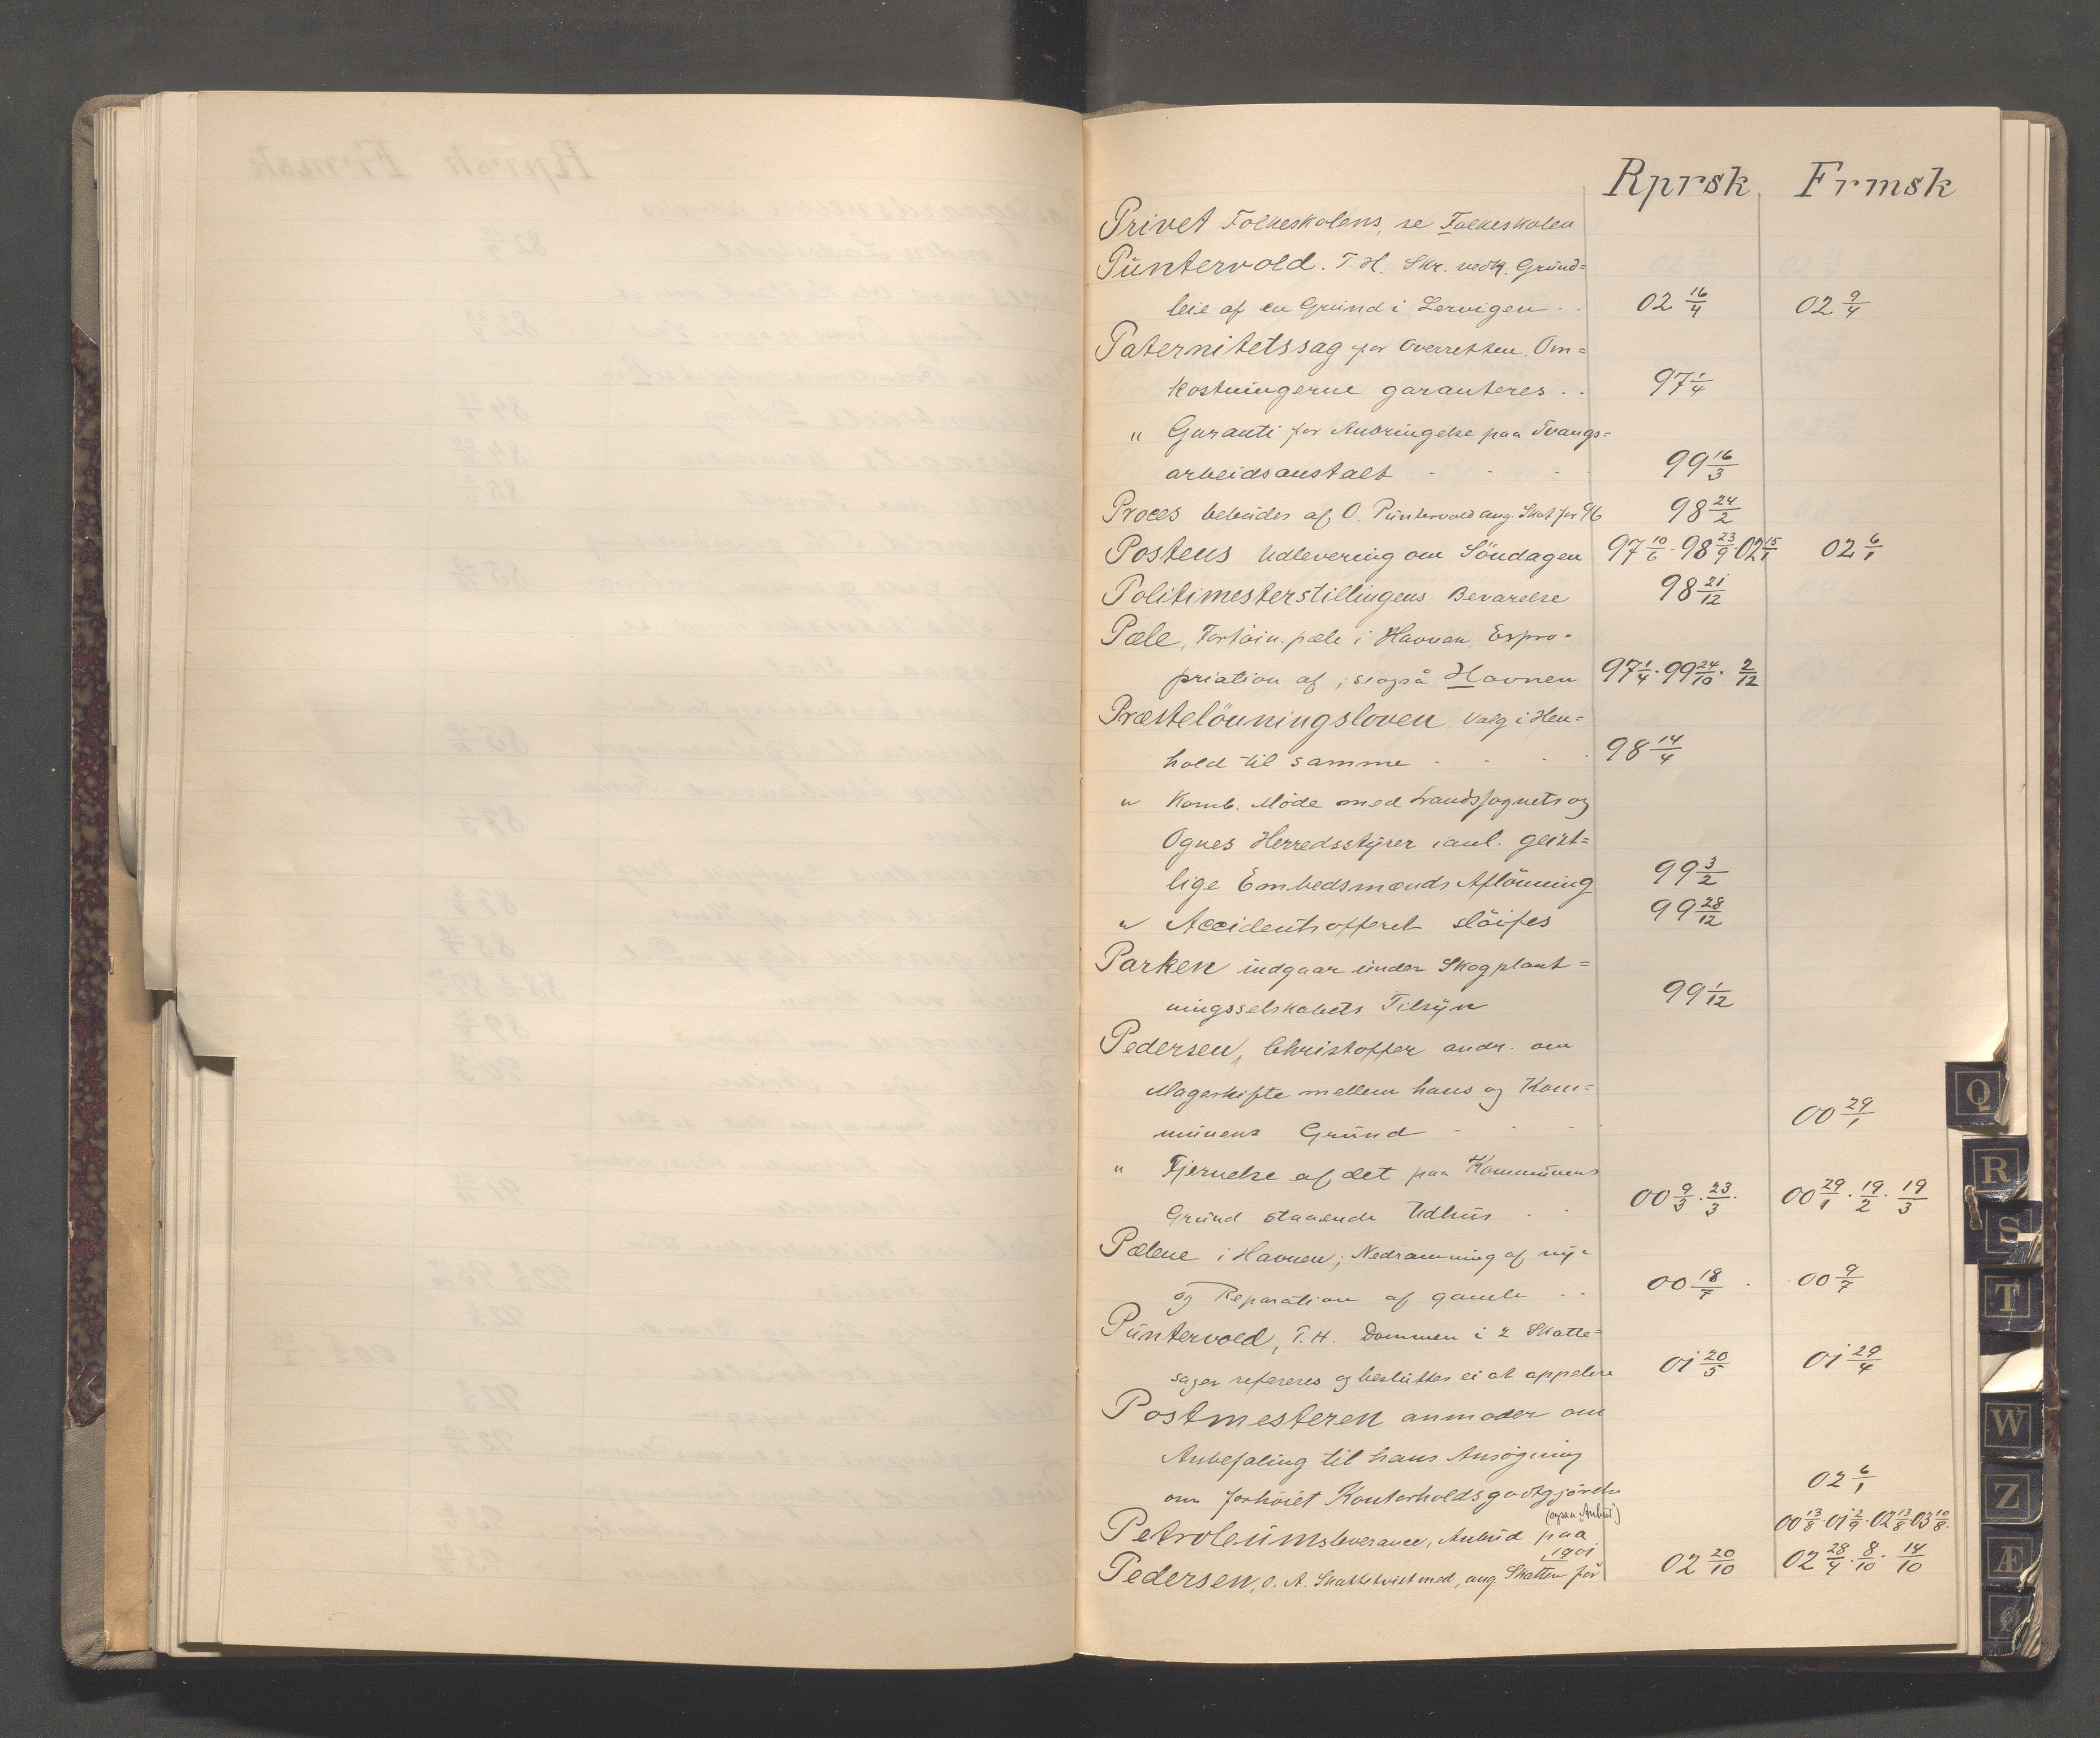 Rprsk Frmsk
Privet Folkeskolens, se Folkeskolen
Püntervold. T. H. Skr. vedk. Gründ=
leie af en Gründ i Lervigen . . 02 16/4 02 9/4
Paternitetssag for Overretten. Om=
kostningerne garanteres . . 97 1/4
" Garanti for Anbringelse paa Tvangs=
arbeidsanstalt - - - 99 16/3
Proces bebüdes af O. Püntervold ang. Skat for 96 98 24/2
Postens Udlevering om Söndagen 97 10/6 · 98 23/9 02 15/1 02 6/1
Politimesterstillingens Bevarelse 98 21/12
Pæle, Fortöin. pæle i Havnen, Expro-
priation af ; se også Havnen 97 1/4 · 99 24/10 · 2/12
Præstelönningsloven Valg i Hen=
hold til samme - - - 98 14/4
" Komb. Möde med Landssognets og
Ognes Herredsstÿrer i anl. geist=
lige Embedsmænds Aflönning 99 3/2
" Accidents offeret slöifes 99 28/12
Parken indgaar ünder Skogplant=
ningsselskabets Tilsÿn 99 1/12
Pedersen, Christoffer andr. om
Mageskifte mellem hans og Kom=
münens Gründ - - - 00 29/1
" Fjernelse af det paa Kommünens
Gründ staaende Udhüs - - 00 9/3 · 23/3 · 00 29/1 · 19/2 · 19/3
Pælene i Havnen; Nedramning af nÿe
og Reparation af gamle . . 00 18/7 · 00 9/7
Püntervold, T. H. Dommen i 2 Skatte=
sager refereres og beslüttes ei at appelere 01 20/5 01 29/4
Postmesteren anmoder om
Anbefaling til hans Ansögning
om forhöiet Kontorholdsgodtgjörelse 02 6/1
(ogsaa "Anbud")
Petroleümsleverance, Anbüd paa 00 13/8 · 01 2/9 · 02 13/8 03 10/8 ·
1901
Pedersen, O. A. Skattetvist med, ang. Skatten for 02 20/10 02 28/4 · 8/10 · 14/10
Q
R
S
T
W
Z
Æ
Ø